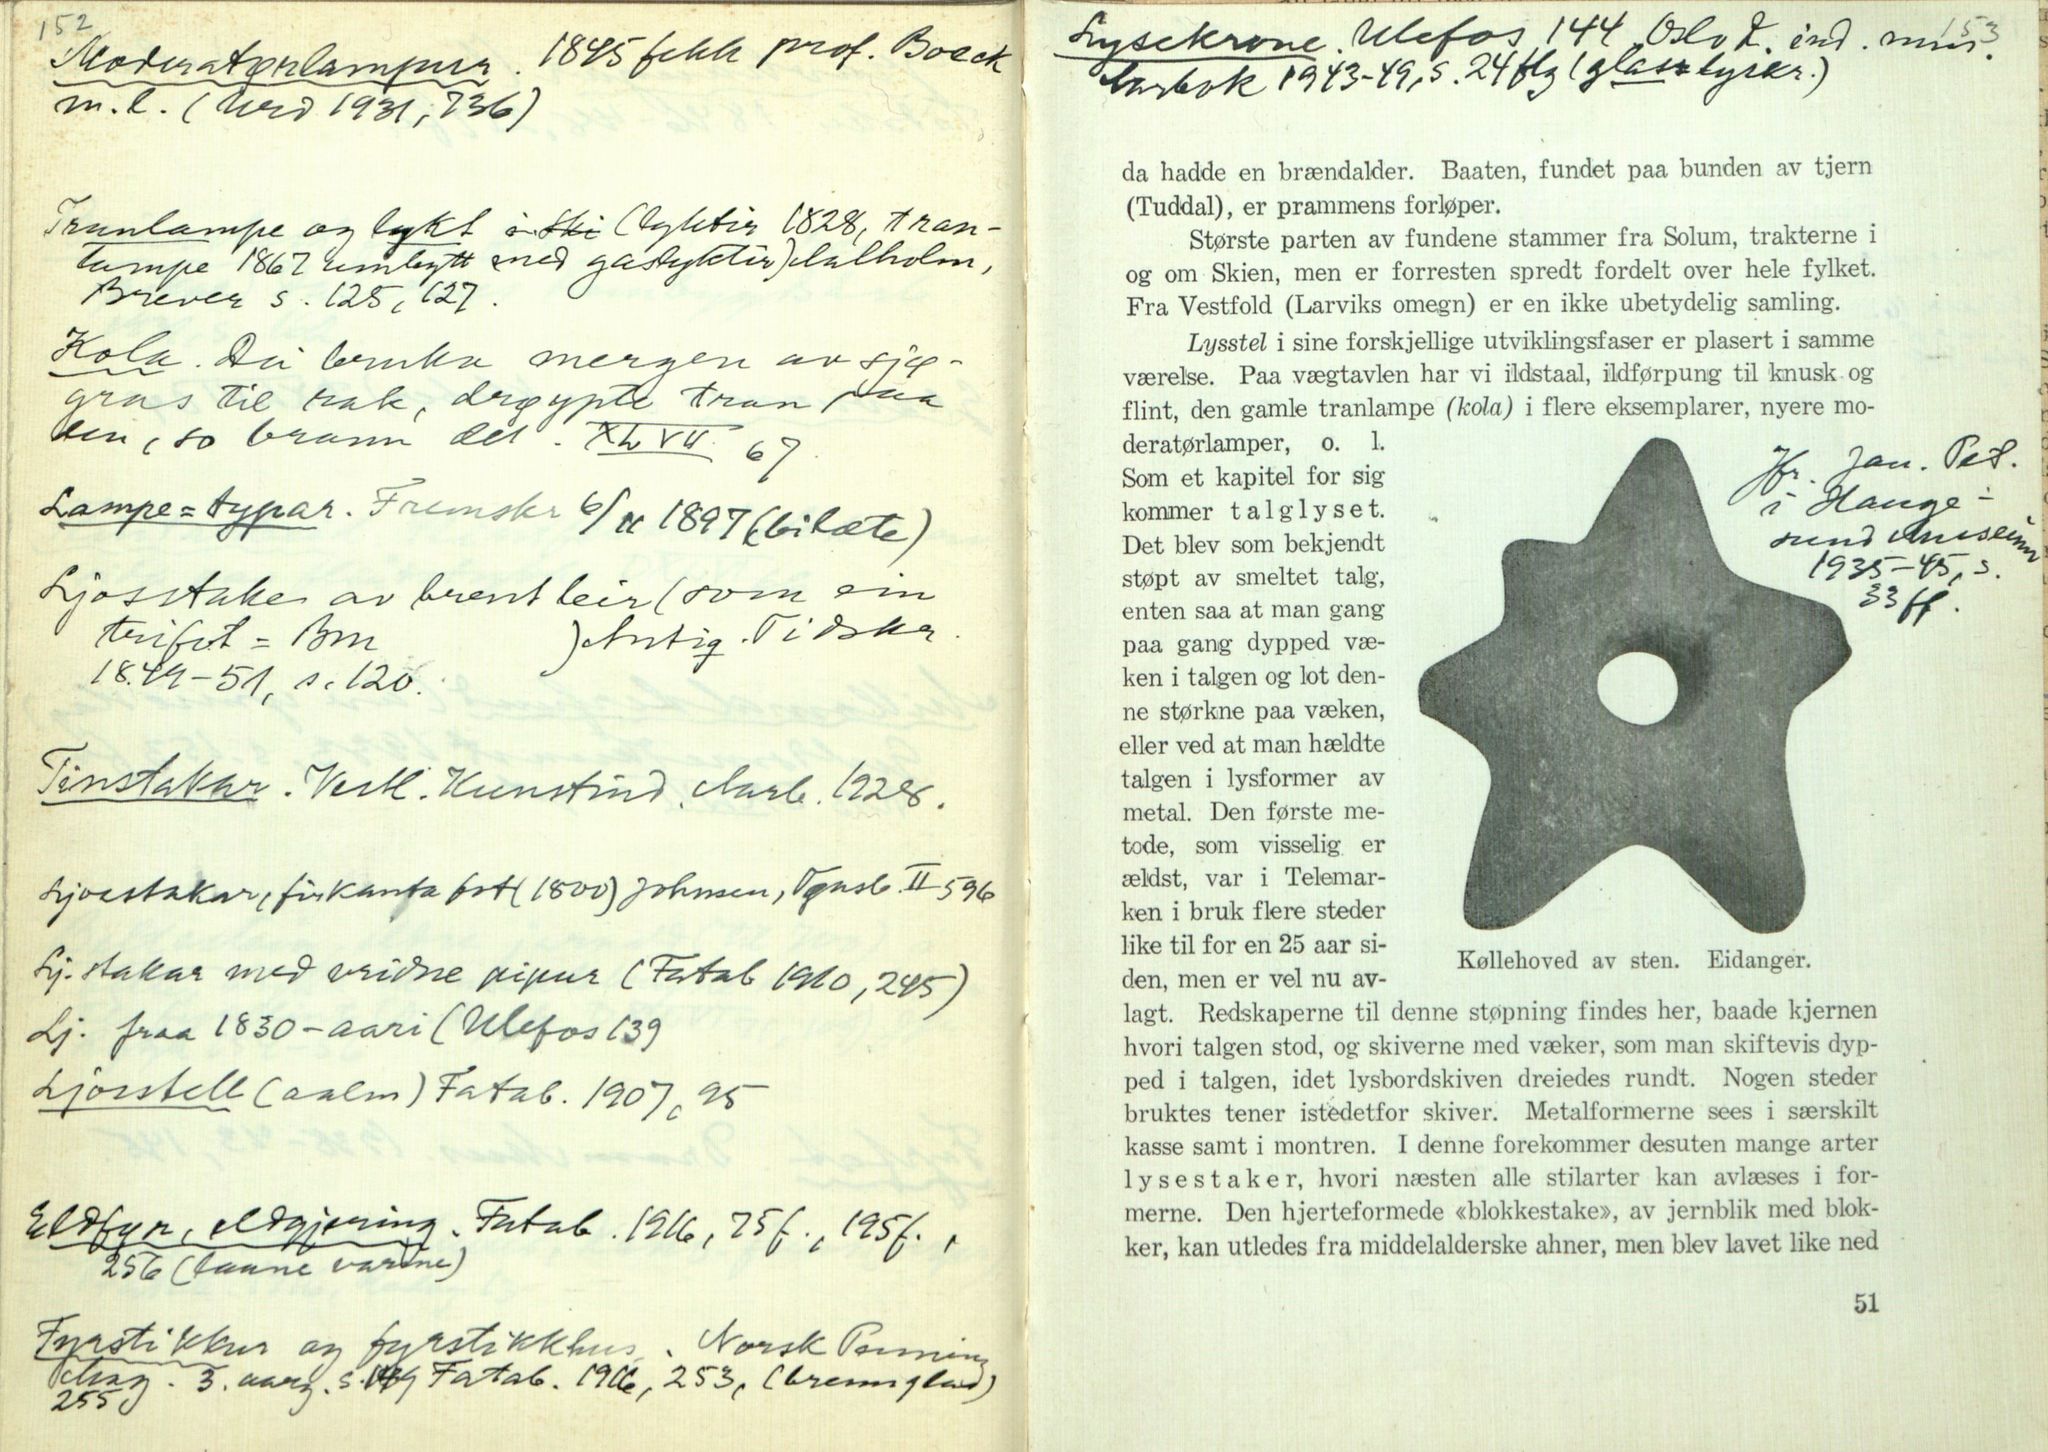 152
Moderatørlampur. 1845 fekk prof. Boeck
m.l. (Urd 1931, 736)
Tranlampe og lykt i Ski (lyktir 1828, tran-
lampe 1867 umbytt med gaslyktir) Malholm,
Brever s. 125, 127.
Kola. Dei bruka mergen av sjø-
gras til rak, drøypte tran paa
den, so brann det. XLVII 67.
Lampe=typar. Fremskr 6/11 1897 (bilæte)
Ljosstake av brent leir (som ein
trifot = BM ) Antiq. Tidskr.
1849-51, s. 120.
Tinstakar. Vestl. Kunstind. Aarb. 1928.
Ljosstakar, firkanta fot (1800) Johnsen, Tønsb. II 596
Lj. stakar med vridne pipur (Fatab 1910, 245)
Lj. fraa 1830-aari (Ulefos 139
Ljosstell (aalm) Fatab. 1907, 95
Eldfyr, eldgjering. Fatab. 1916, 75f., 195f.,
256 (taane varme)
Fyrstikkur og fyrstikkhus. Norsk Penning
Mag. 3. aarg. s. Fatab. 1916, 253, (brennglas)
255
Lysekrone. Ulefos 144. Oslo k. ind. mus. 153
Aarbok 1943-49, s. 24 flg (glaslyskr.)
da hadde en brændalder. Baaten, fundet paa bunden av tjern
(Tuddal), er prammens forløper.
Største parten av fundene stammer fra Solum, trakterne i
og om Skien, men er forresten spredt fordelt over hele fylket.
Fra Vestfold (Larviks omegn) er en ikke ubetydelig samling.
Lysstel i sine forskjellige utviklingsfaser er plasert i samme
værelse. Paa vægtavlen har vi ildstaal, ildførpung til knusk og
flint, den gamle tranlampe (kola) i flere eksemplarer, nyere mo-
deratørlamper, o. l.
Som et kapitel for sig
kommer talglyset.
Det blev som bekjendt
støpt av smeltet talg,
enten saa at man gang
paa gang dypped væ-
ken i talgen og lot den-
ne størkne paa væken,
eller ved at man hældte
talgen i lysformer av
metal. Den første me-
tode, som visselig er
ældst, var i Telemar-
ken i bruk flere steder
like til for en 25 aar si-
den, men er vel nu av-
Jfr. Jan. Pet.
i Hauge-
sund Museum
1935-45, s.
33 ff.
Køllehoved av sten. Eidanger.
lagt. Redskaperne til denne støpning findes her, baade kjernen
hvori talgen stod, og skiverne med væker, som man skiftevis dyp-
ped i talgen, idet lysbordskiven dreiedes rundt. Nogen steder
bruktes tener istedetfor skiver. Metalformerne sees i særskilt
kasse samt i montren. I denne forekommer desuten mange arter
lysestaker, hvori næsten alle stilarter kan avlæses i for-
merne. Den hjerteformede «blokkestake», av jernblik med blok-
ker, kan utledes fra middelalderske ahner, men blev lavet like ned
51